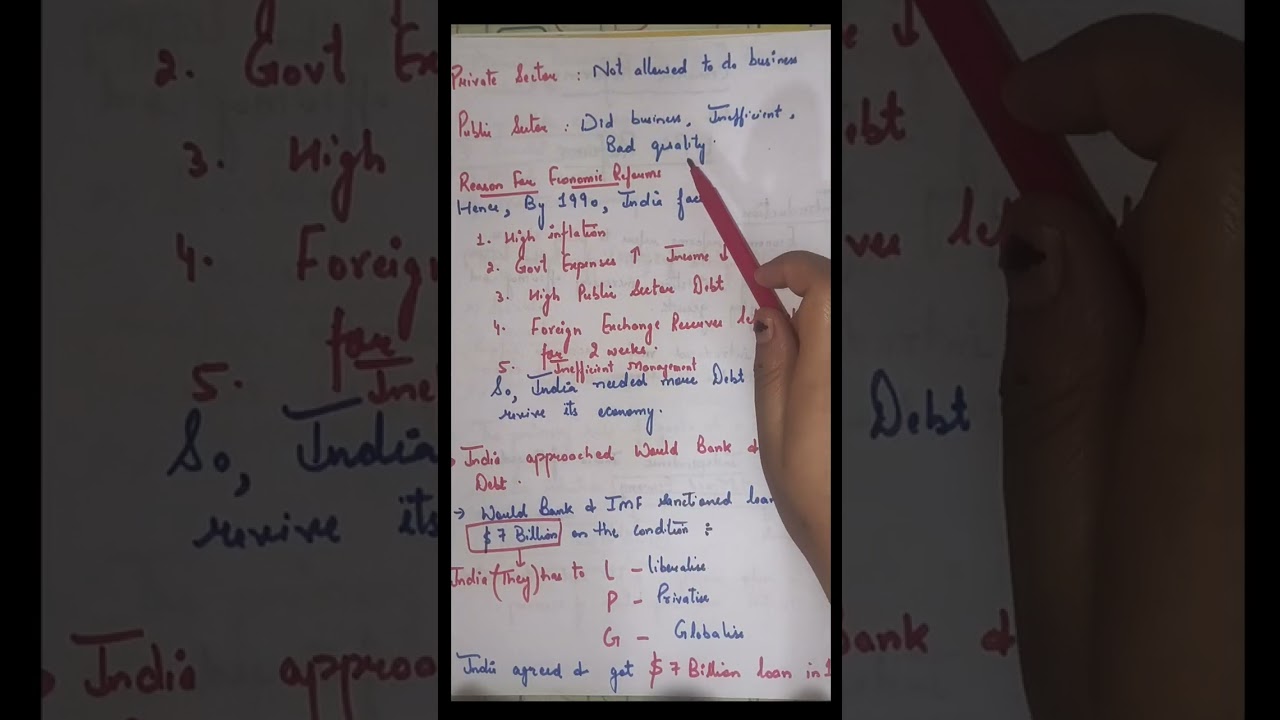 Private Sector : Not allowed to do business
Public Sector : Did business, Inefficient,
Bad quality.
Reason For Economic Reforms
Hence, By 1990, India
1. High inflation
2. Govt Expenses ↑ Income ↓
3. High Public Sector Debt
4. Foreign Exchange Reserves
for 2 weeks.
5. Inefficient Management
So, India needed more Debt
revive its economy.
India approached Would Bank &
Debt.
→ Would Bank & IMF sanctioned loan
$7 Billion on the condition :
India (They) has to L - liberalise
P - Privatise
G - Globalise
India agreed & got $7 Billion loan in